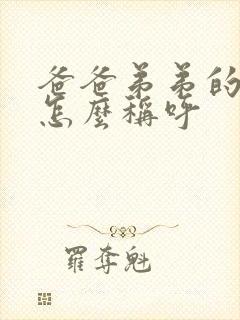 爸爸弟弟的
怎麼稱呼
羅奪魁